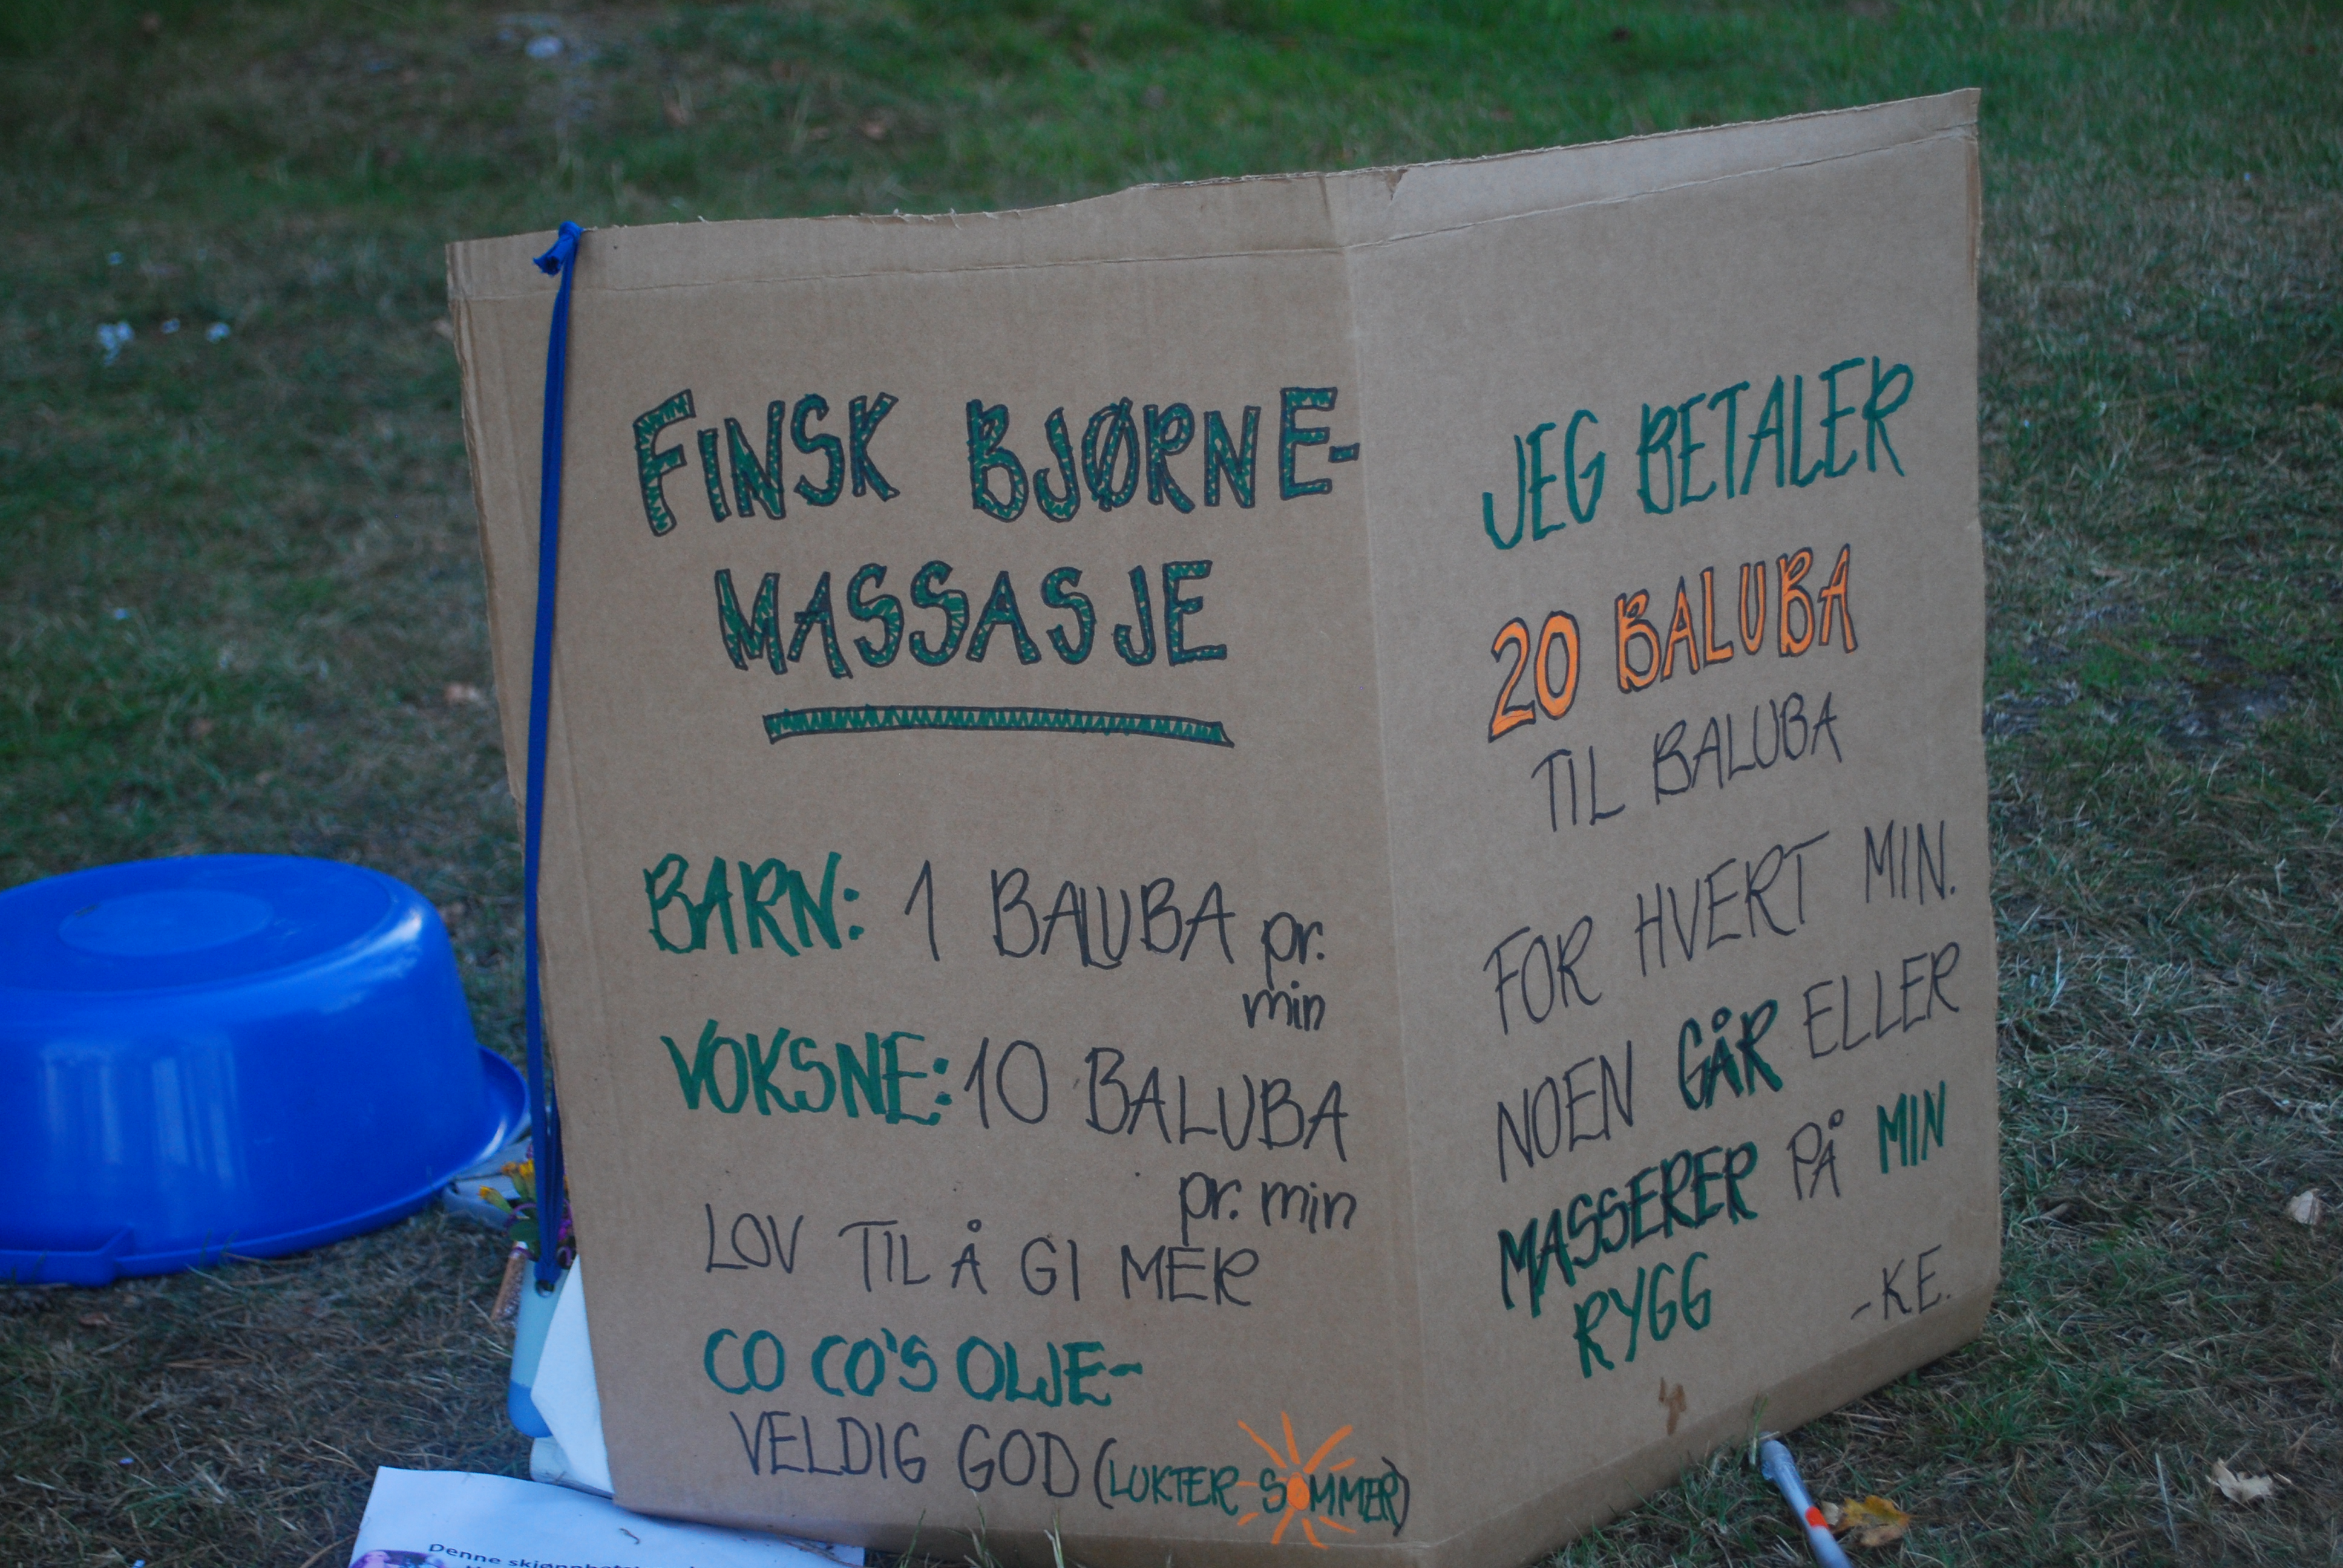 FINSK BJØRNE-
MASSASJE
BARN: 1 BALUBA pr.
min
VOKSNE: 10 BALUBA
pr. min
LOV TIL Å GI MER
CO CO'S OLJE-
VELDIG GOD (LUKTER SOMMER)
JEG BETALER
20 BALUBA
TIL BALUBA
FOR HVERT MIN.
NOEN GÅR ELLER
MASSERER PÅ MIN
RYGG
-KE.
Denne